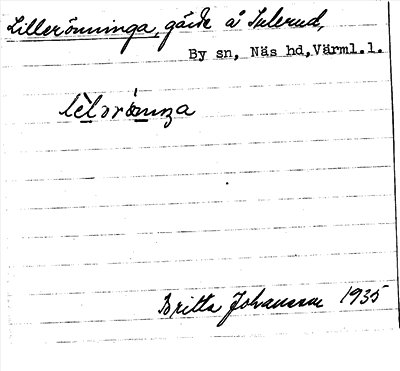 Lillerönninga, gärde å Sulerud,
By sn, Näs hd, Värml.l.
Britta Johansson 1935